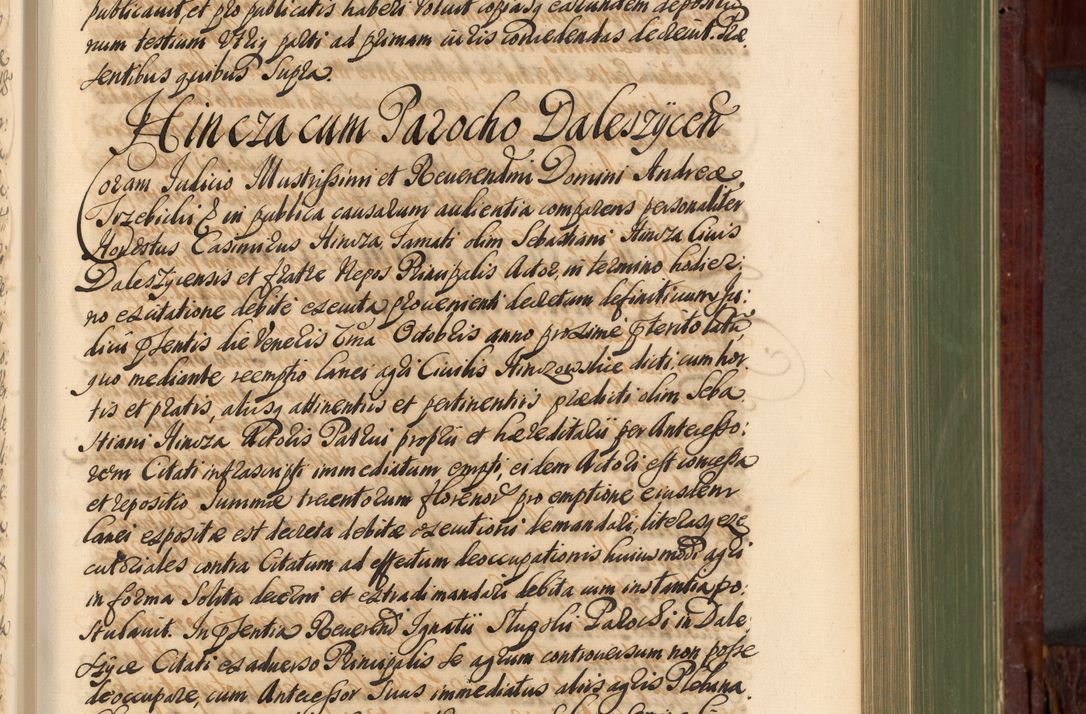 publicauit, et pro publicatis haberi voluit copiasq earundem depositio
num testium utriq parti ad primam iuris concedendas decreuit. Prę
sentibus quibus supra.
Hincza cum Parocho Daleszÿcen
Coram Judicio Illustrissimi et Reuerendmi Domini Andreæ
Trzebicki & in publica causarum audientia comparens personaliter
Honestus Casimirus Hincza, Famati olim Sebastiani Hincza Ciuis
Daleszycensis et fratre Nepos Principalis Actor, in termino hodier:
no ex citatione debite executa prouenienti decretum definitiuum Ju:
dicii pſentis die Veneris 7ma Octobris anno proxime pterito latū
quo mediante reemptio lanei agri Ciuilis Hinczowskie dicti, cum hor
tis et pratis, aliisq attinentiis et pertinentiis prædicti olim Seba
stiani Hincza Actoris Patrui proprii et hæreditarii per Antecesso:
rem Citati infrascripti immediatum empti, eidem Actori est concessa
et repositio summæ trecentorum florenorū pro emptione eiusdem
lanei expositæ est decreta debitæ executioni demandari, literasq exe
cutoriales contra Citatum ad effectum deoccupationis huiusmodi agri
in forma solita decerni et extradi mandari debita cum instantia po:
stulauit. In pſentia Reuerendi Ignatii Parochi in Dale
szÿce Citati ex aduerso Principalis se agrum controuersum non posse
deoccupare, cum Antecessor suus immediatus aliis agris Plebana